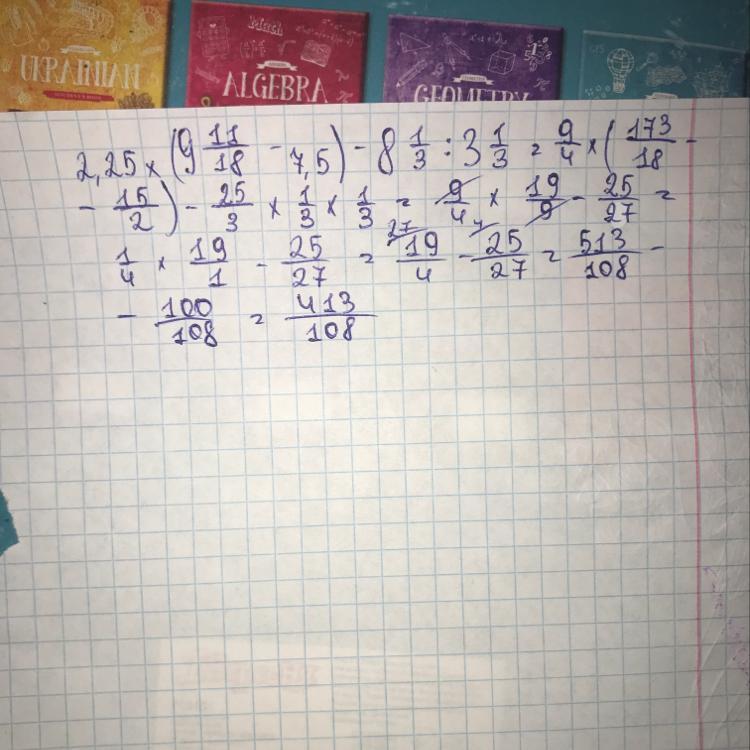 UKRAINIAN
Math
ALGEBRA
GEOMETRY
2,25 × (9 11/18 - 7,5) - 8 1/3 : 3 1/3 = 9/4 × (173/18 -
- 15/2) - 25/3 × 1/3 × 1/3 = 9/4 × 19/9 - 25/27 =
1/4 × 19/1 - 25/27 = 27 19/4 - 4 25/27 = 513/108 -
- 100/108 = 413/108